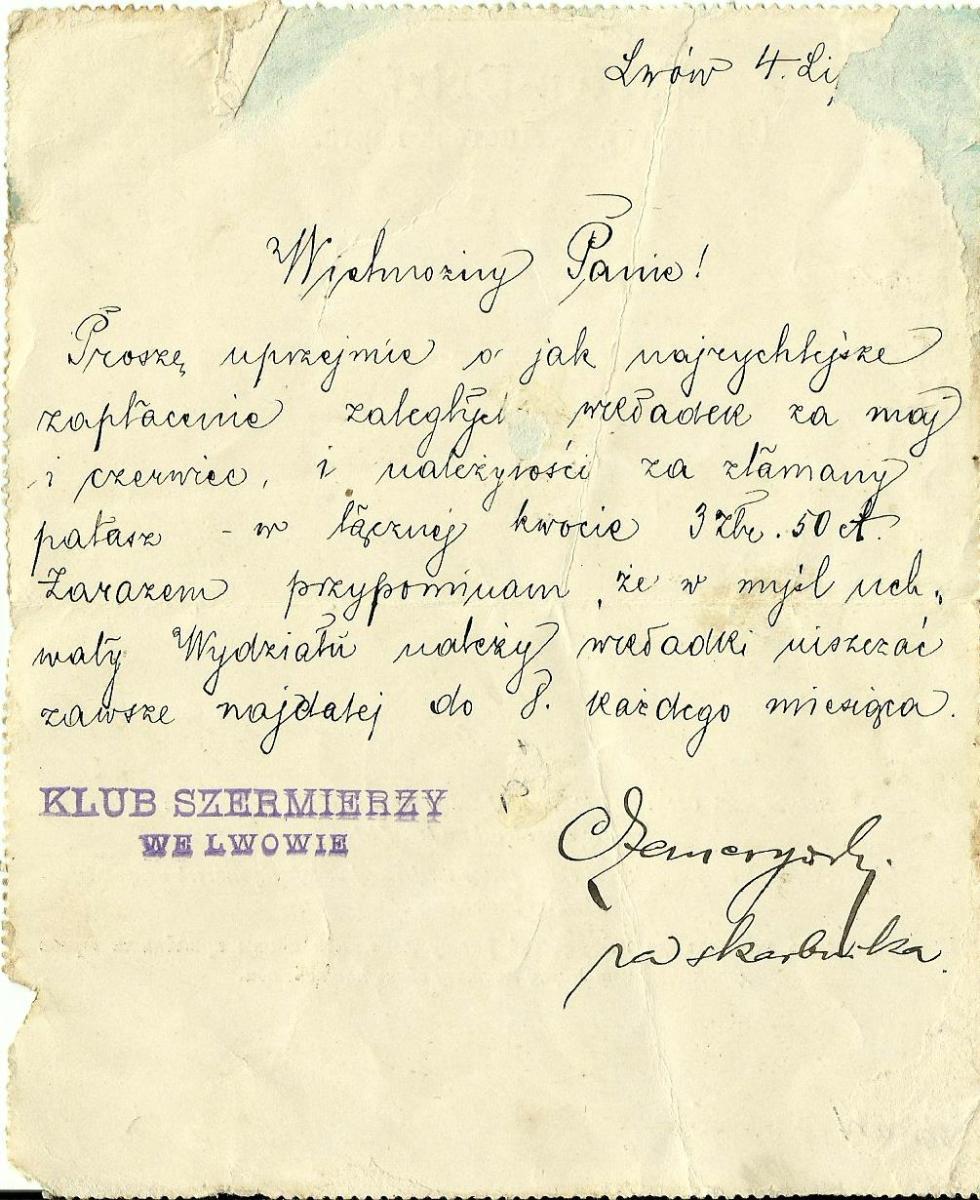 Lwów 4. Li
Wielmożny Panie!
Proszę uprzejmie o jak najrychlejsze
zapłacenie zaległych wkładek za maj
i czerwiec, i należytości za złamany
pałasz - w łącznej kwocie 3 złr. 50 ct.
Zarazem przypominam, że w myśl uch„
wały Wydziału należy wkładki uiszczać
zawsze najdalej do 8. każdego miesiąca.
KLUB SZERMIERZY
WE LWOWIE
za skarbnika